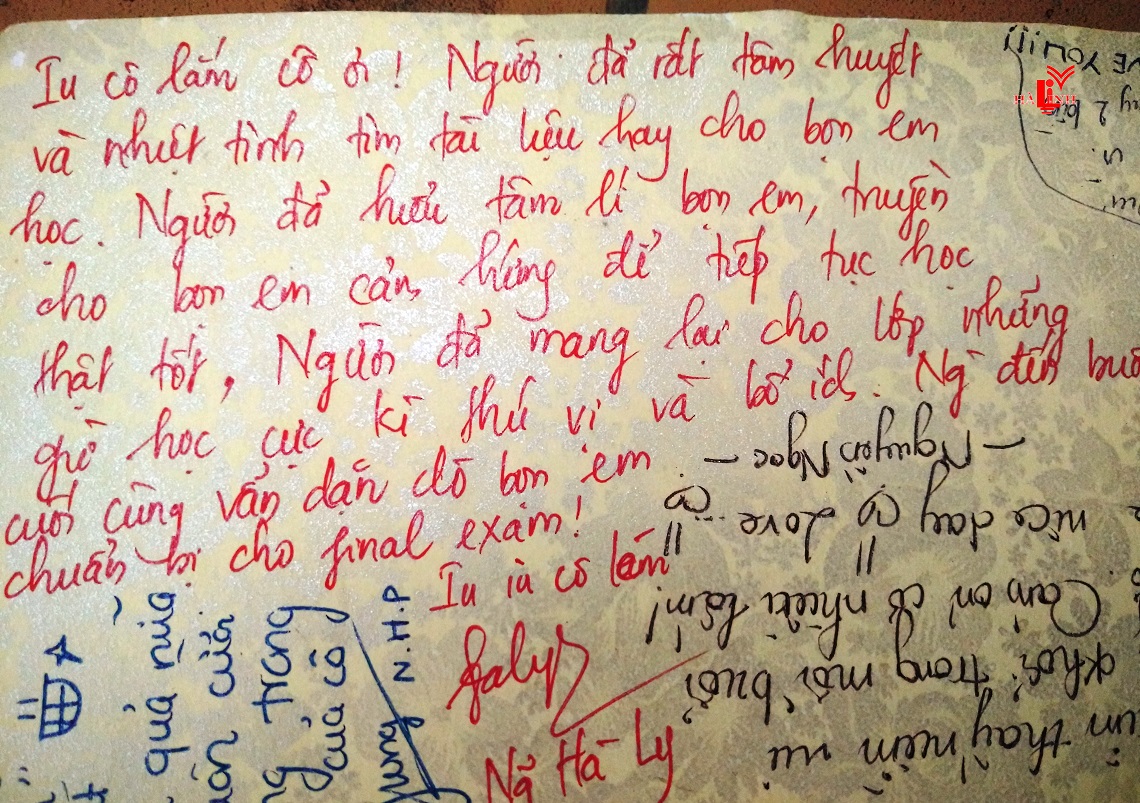 Iu cô lắm cô ơi! Người đã rất tâm huyết
và nhiệt tình tìm tài liệu hay cho bọn em
học. Người đã hiểu tâm lí bọn em, truyền
cho bọn em cảm hứng để tiếp tục học
thật tốt, Người đã mang lại cho lớp những
giờ học cực kì thú vị và bổ ích. Ng` đến buổ
cuối cùng vẫn dặn dò bọn em
chuẩn bị cho final exam!
Iu iu cô lắm
Galy
Ng~ Hà Ly
quả nữa
cuối
trong
của cô
Nhung N.H.P
thấy niềm vui
khởi trong mỗi buổi
Cảm ơn cô nhiều lắm!
nice day cô = Love cô =
- Nguyễn Ngọc -
VE YOU!!!
HÀ LINH